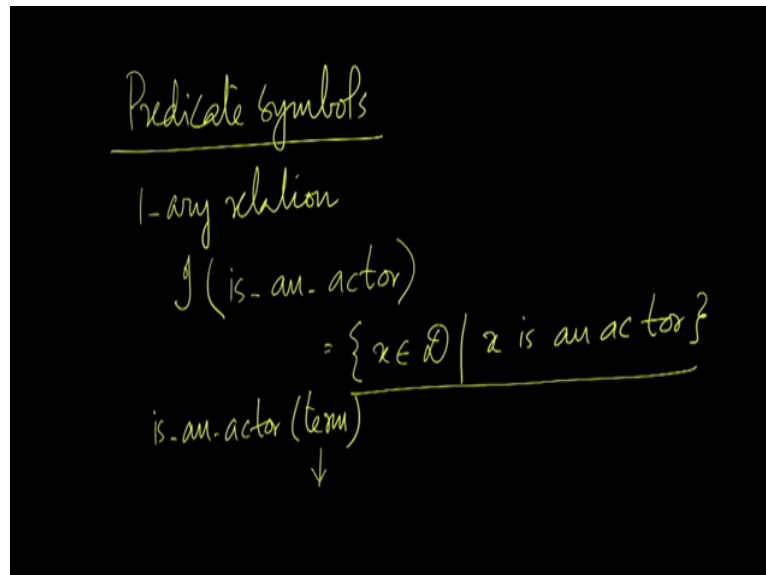 Predicate symbols
1-ary relation
I (is_an_actor)
= {x ∈ D | x is an actor}
is_an_actor (term)
↓